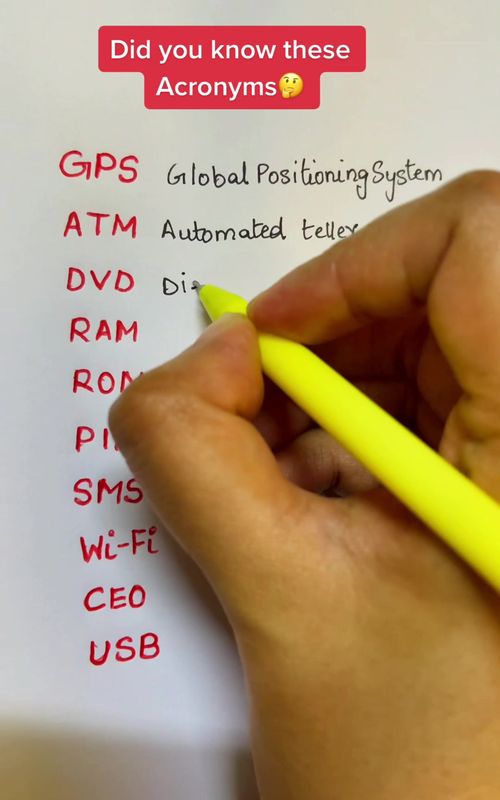 Did you know these
Acronyms🤔
GPS Global Positioning System
ATM Automated teller
DVD
RAM
SMS
Wi-Fi
CEO
USB